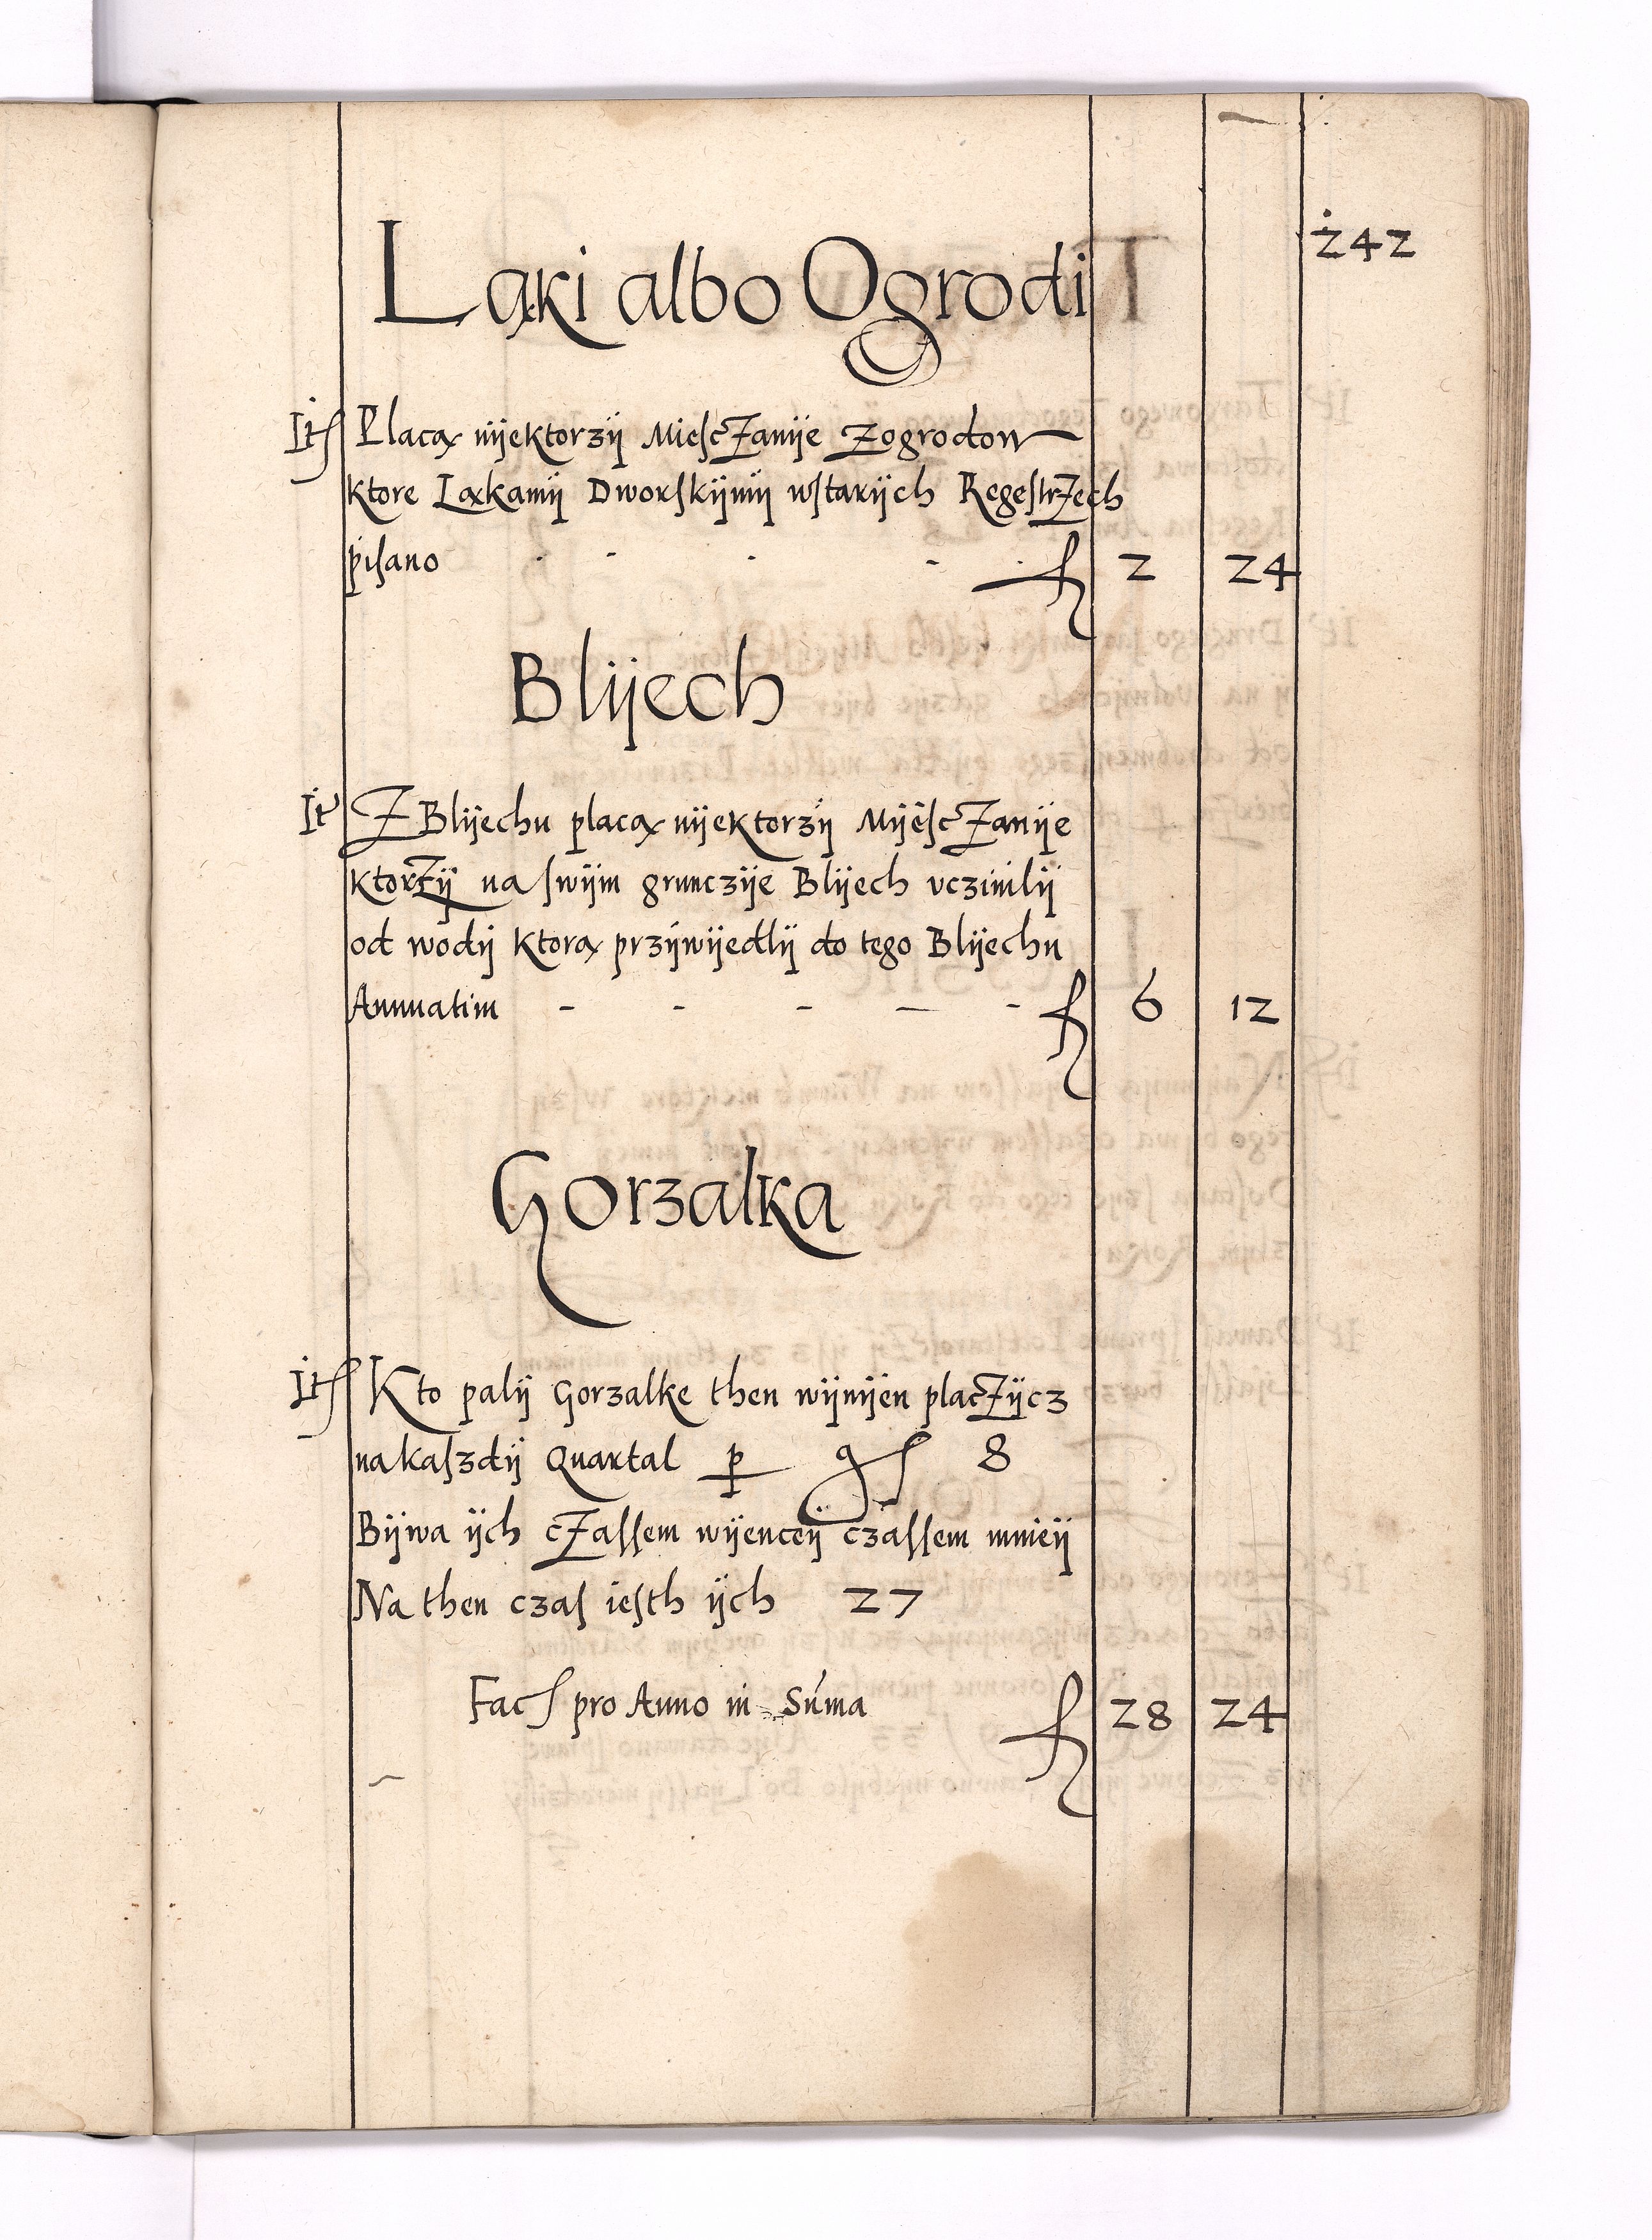 242
Ląki albo Ogrodi
Itß Placą nÿektorzÿ MieſcZanÿe Zogrodow
Ktore Ląkamÿ Dworſkÿmÿ wſtarÿch RegeſtrZech
piſano - - - - - f 2 24
Blÿech
It Z Blÿechu placą nÿektorzÿ MÿeſcZanÿe
KtorZÿ na ſwÿm grunczÿe Blÿech vczinilÿ
od wodÿ Ktorą przÿwÿedlÿ do tego Blÿechu
Annuatim - - - - - f 6 12
Gorzalka
Itß Kto palÿ Gorzalke then wÿnÿen placZÿcz
nakaſzdÿ Quartal p gß 8
Bÿwa ÿch cZaſſem wÿenceÿ czaſſem mnieÿ
Na then czaſ ieſth ÿch 27
Facß pro Anno in Sūma f 28 24